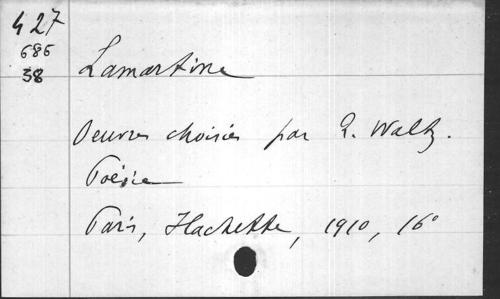 427
686
38
Lamartine
Oeuvres choisies par R. Waltz.
Poésie
Paris, Hachette, 1910, 16°